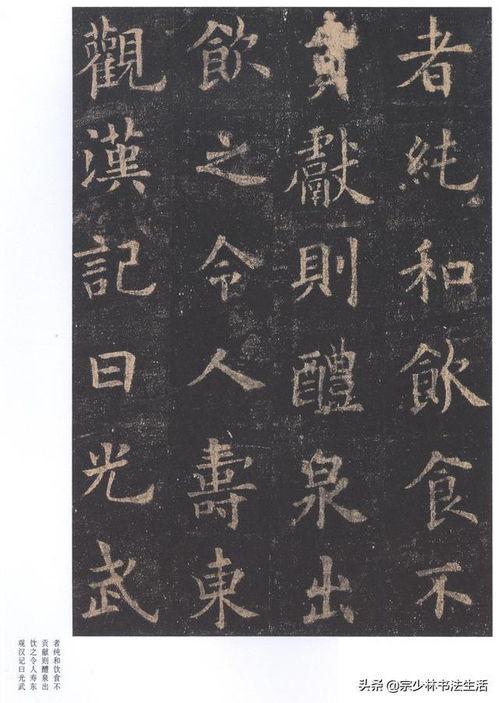 者純和飲食不
貢獻則醴泉出
飲之令人壽東
觀漢記曰光武
者纯和饮食不
贡献则醴泉出
饮之令人寿东
观汉记曰光武
头条@宗少林书法生活